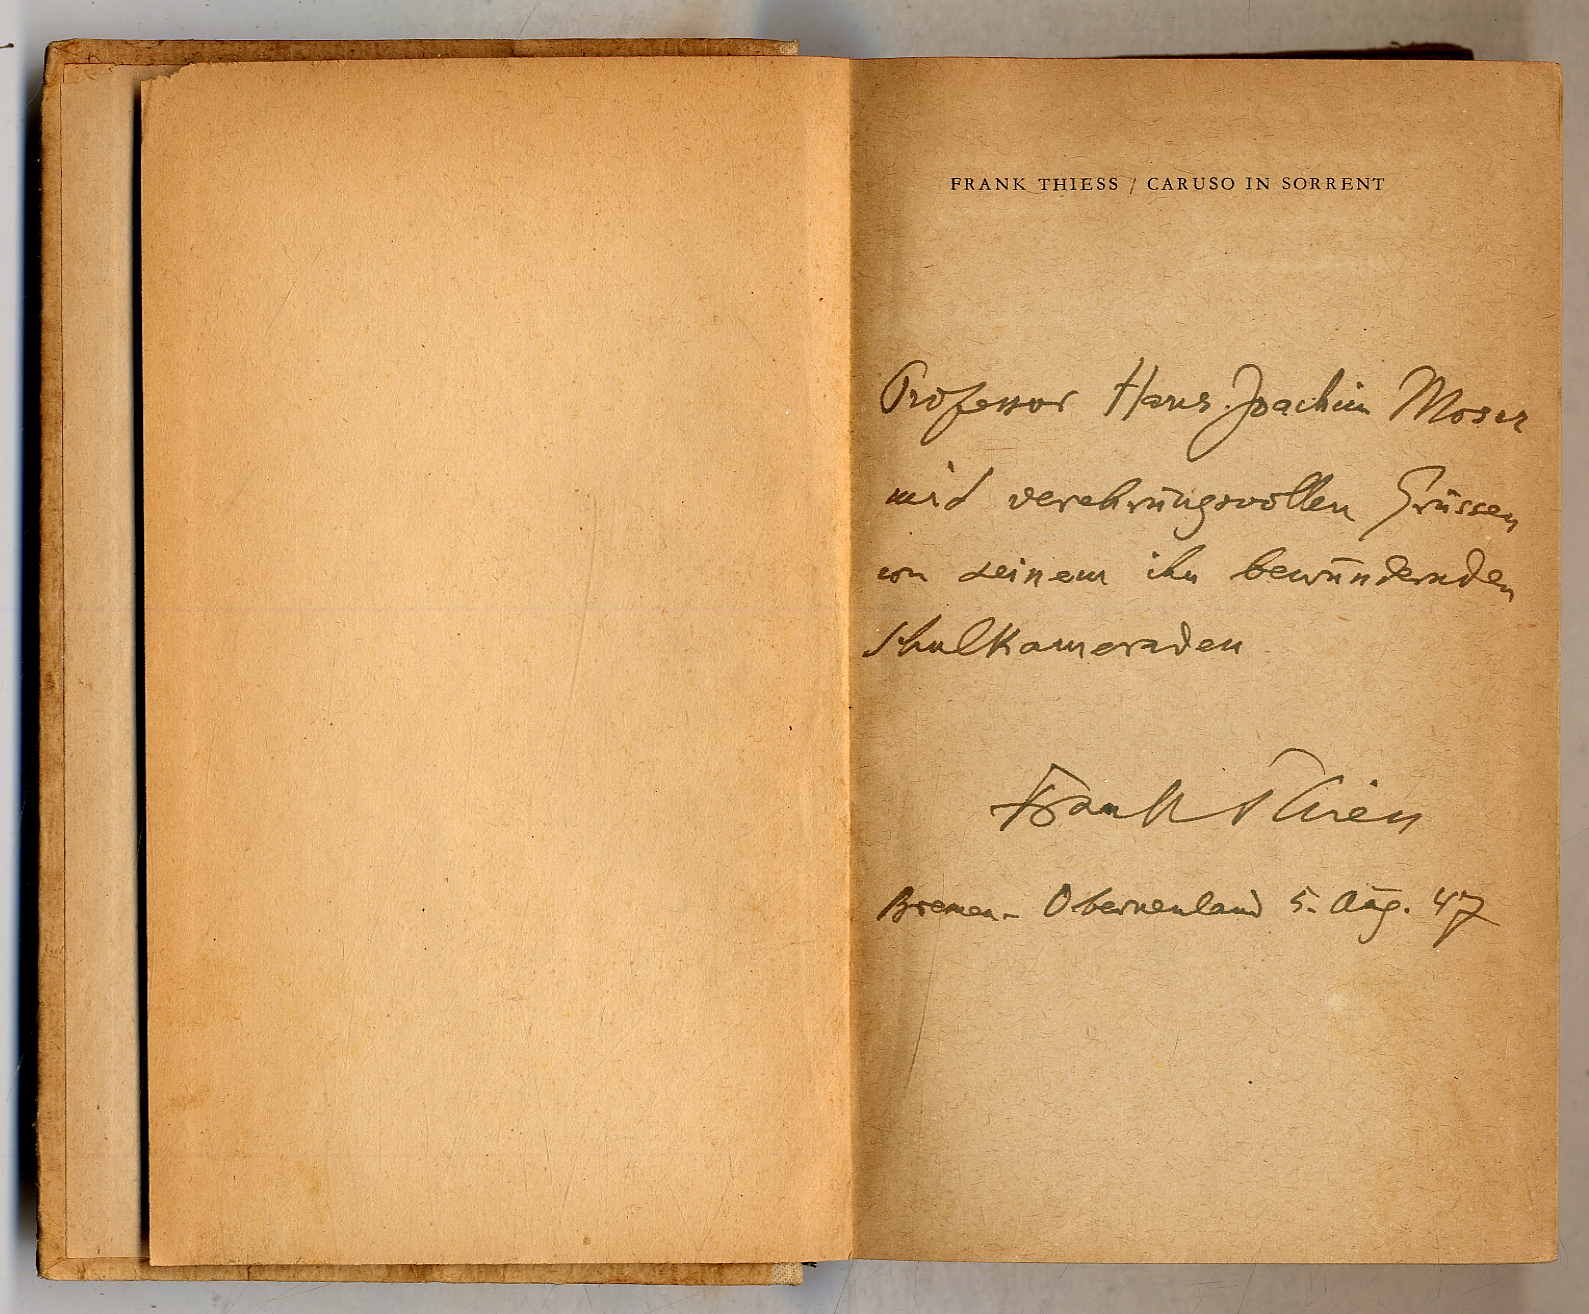 FRANK THIESS / CARUSO IN SORRENT
Professor Hans Joachim Moser
mit verehrungsvollen Grüssen
von seinem ihn bewundernden
Schulkameraden
Frank Thiess
Bremen-Oberneuland 5. Aug. 47